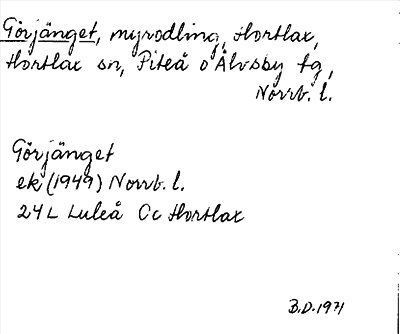 Görjänget, myrodling, Hortlax,
Hortlax sn, Piteå o Älvsby tg,
Norrb. l.
Görjänget
ek (1949) Norrb. l.
24L Luleå Cc Hortlax
B.D. 1971